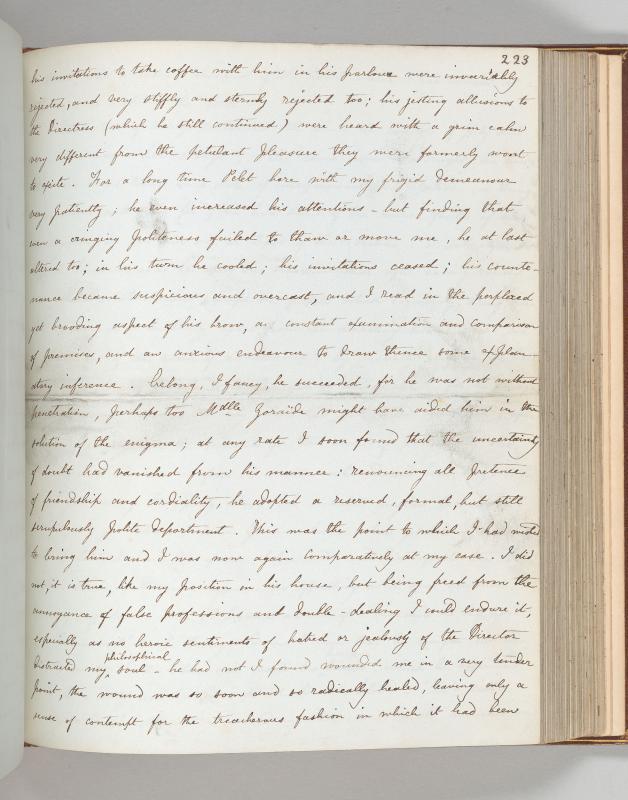 223
his invitations to take coffee with him in his parlour were invariably
rejected, and very stiffly and sternly rejected too; his jesting allusions to
the Directress (which he still continued) were heard with a grim calm
very different from the petulant pleasure they were formerly wont
to excite. For a long time Pelet bore with my frigid demeanour
very patiently; he even increased his attentions - but finding that
even a cringing politeness failed to thaw or move me, he at last
altered too; in his turn he cooled; his invitations ceased; his counte-
nance became suspicious and overcast, and I read in the perplexed
yet brooding aspect of his brow, a constant examination and comparison
of premises, and an anxious endeavour to draw thence some explan-
atory inference. Erelong, I fancy, he succeeded, for he was not without
penetration, perhaps too Mdlle Zoraïde might have aided him in the
solution of the enigma; at any rate I soon found that the uncertainty
of doubt had vanished from his manner: renouncing all pretence
of friendship and cordiality, he adopted a reserved, formal, but still
scrupulously polite deportment. This was the point to which I had wished
to bring him and I was now again comparatively at my ease. I did
not, it is true, like my position in his house, but being freed from the
annoyance of false professions and double-dealing I could endure it,
especially as no heroic sentiments of hatred or jealously of the Director
distracted my philosophical soul - he had not I found wounded me in a very tender
point, the wound was so soon and so radically healed, leaving only a
sense of contempt for the treacherous fashion in which it had been